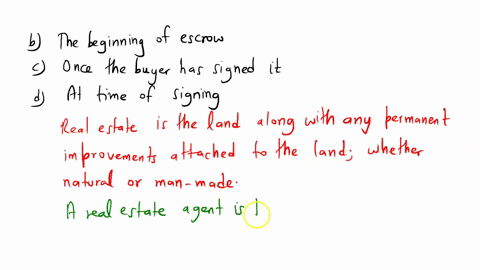 b) The beginning of escrow
c) Once the buyer has signed it
d) At time of signing
Real estate is the land along with any permanent
improvements attached to the land; whether
natural or man-made.
A real estate agent is